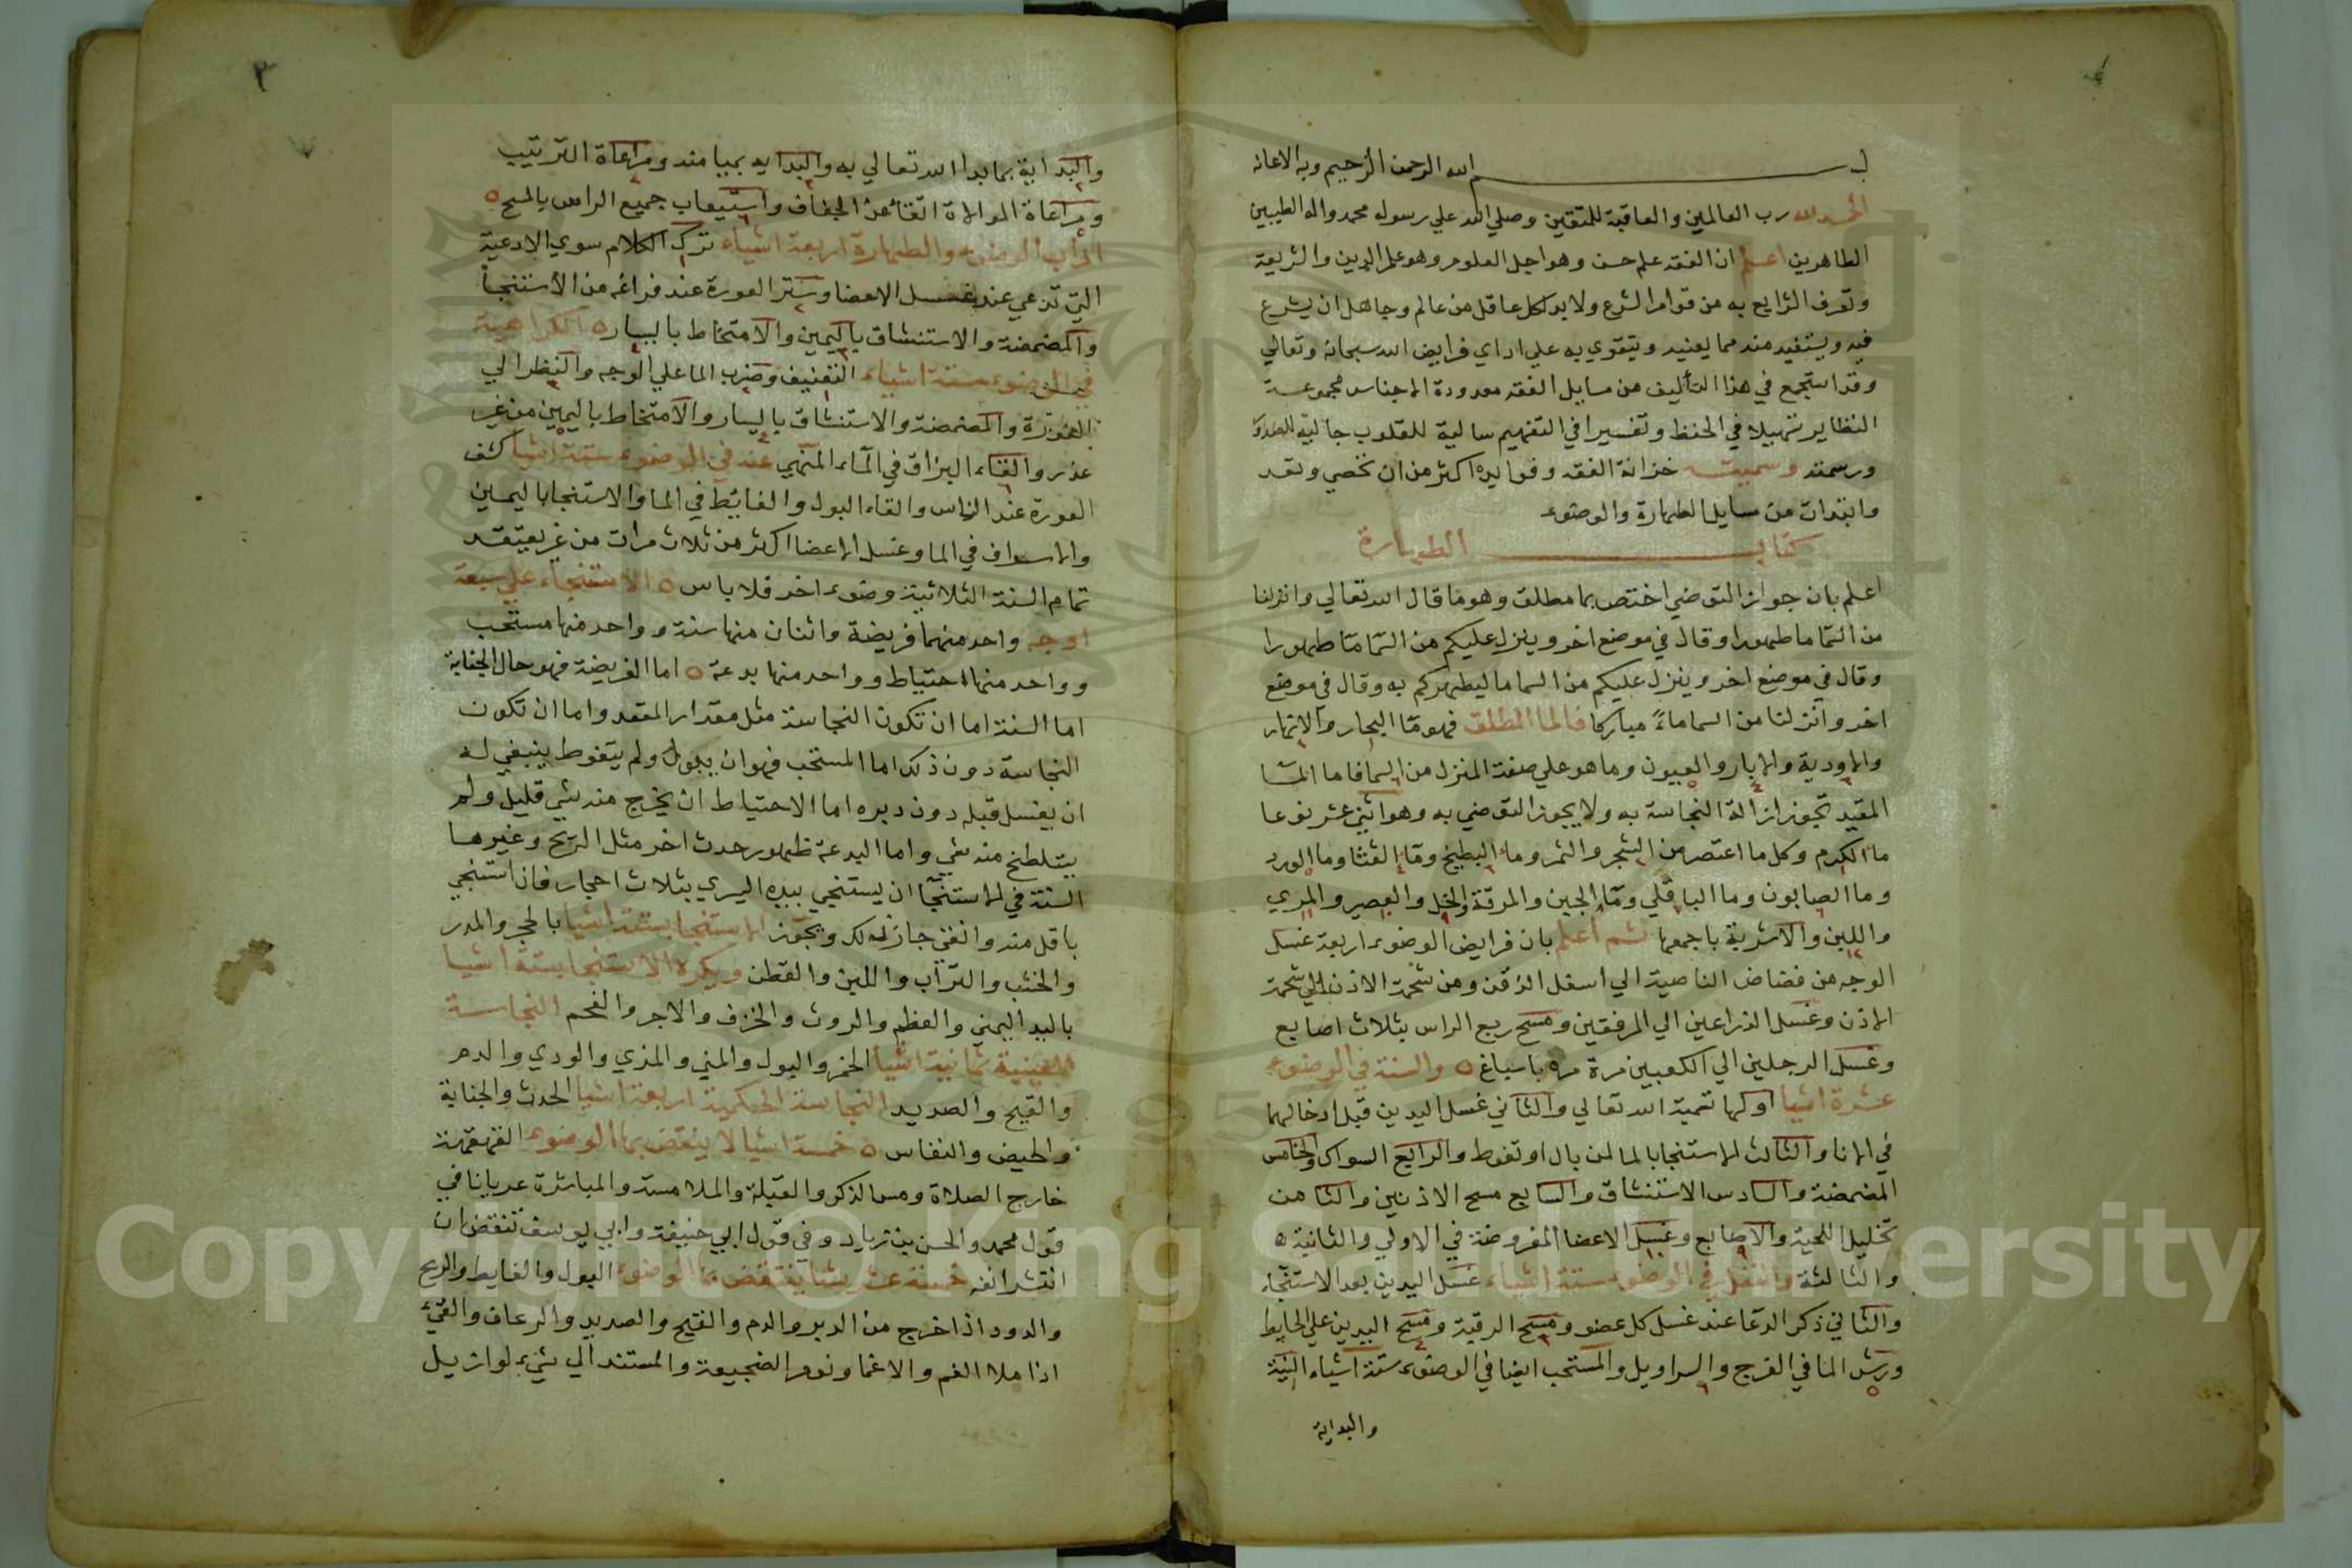 بسم الله الرحمن الرحيم وبه الاعانه
الحمد لله رب العالمين والعاقبة للمتقين وصلي الله علي رسوله محمد واله الطيبين
الطاهرين اعلم ان الفقه علم حسن وهو اجل العلوم وهو علم الدين والشريعة
وتعرف الشرايع به من قوام الشرع ولا بد لكل عاقل من عالم وجاهل ان يشرع
فيه ويستفيد منه مما يعنيه ويتقوي به علي اداي فرايض الله سبحانه وتعالي
وقد استجمع في هذا التأليف من مسايل الفقه معدودة الاجناس مجموعة
النظاير تسهيلا في الحفظ وتفسيرا في التفهيم سالبة للقلوب جالبة
ورسمته وسميته خزانة الفقه وفوايده اكثر من ان تحصي وتعد
وابتدات من مسايل الطهارة والوضوء
كتاب الطهارة
اعلم بان جواز التوضي اختص بما مطلق وهو ما قال الله تعالي وانزلنا
من السما ما طهورا وقال في موضع اخر وينزل عليكم من السما ما طهورا
وقال في موضع اخر وينزل عليكم من السما ما ليطهركم به وقال في موضع
اخر وانزلنا من السما ماءً مباركا فالما المطلق فهو ما البحار والانهار
والاودية والابار والعيون وما هو علي صفة المنزل من السما فاما الما
المقيد تجوز ازالة النجاسة به ولا يجوز التوضي به وهو اثني عشر نوعا
ما الكرم وكل ما اعتصر من الشجر والثمر وما البطيخ وما القثا وما الورد
وما الصابون وما الباقلي وما الجبن والمرقة والخل والعصير والمري
واللبن والاشربة باجمعها ثم اعلم بان فرايض الوضوء اربعة غسل
الوجه من قصاص الناصية الي اسفل الذقن ومن شحمة الاذن الي شحمة
الاذن وغسل الذراعين الي المرفقين ومسح ربع الراس بثلاث اصابع
وغسل الرجلين الي الكعبين مرة مرة باسباغ ه والسنة في الوضوء
عشرة اشيا اولها تسمية الله تعالي والثاني غسل اليدين قبل ادخالهما
في الانا والثالث الاستنجا بالما لمن بال او تغوط والرابع السواك والخامس
المضمضة والسادس الاستنشاق والسابع مسح الاذنين والثامن
تخليل اللحية والاصابع وغسل الاعضا المفروضة في الاولي والثانية ه
والثالثة والنفل في الوضوء ستة اشياء غسل اليدين بعد الاستنجاء
والثاني ذكر الدعا عند غسل كل عضو ومسح الرقبة ومسح اليدين علي الحايط
ورش الما في الفرج والسراويل والمستحب ايضا في الوضوء ستة اشياء النية
والبداية
٢
والبداية بما بدا الله تعالي به والبدايه بميامنه ومراعاة الترتيب
ومراعاة الموالاة اتقاء عن الجفاف واستيعاب جميع الراس بالمسح ه
اداب الوضوء والطهارة اربعة اشياء ترك الكلام سوي الادعية
التي تدعي عند غسل الاعضا وستر العورة عند فراغه من الاستنجا
والمضمضة والاستنشاق باليمين والامتخاط باليسار ه الكراهية
في الوضوء ستة اشياء التعنيف وضرب الما علي الوجه والنظر الي
العورة والمضمضة والاستنشاق باليسار والامتخاط باليمين من غير
عذر والقاء البزاق في الماء المنهي عنه في الوضوء ستة اشيا كشف
العورة عند الناس والقاء البول والغائط في الما والاستنجا باليمين
والاسراف في الما وغسل الاعضا اكثر من ثلاث مرات من غير يعتقد
تمام السنة الثلاث بنية وضوء اخر فلا باس ه الاستنجاء علي سبعة
اوجه واحد منهما فريضة واثنان منها سنة وواحد منها مستحب
وواحد منها احتياط وواحد منها بدعة ه اما الفريضة فهو حال الجنابة
اما السنة اما ان تكون النجاسة مثل مقدار المقعد واما ان تكون
النجاسة دون ذلك اما المستحب فهو ان يبول ولم يتغوط ينبغي له
ان يغسل قبله دون دبره اما الاحتياط ان يخرج منه شي قليل ولم
يتلطخ منه شي واما البدعة ظهور حدث اخر مثل الريح وغيرها
السنة في الاستنجا ان يستنجي بيده اليسري بثلاث احجار فان استنجي
باقل منه وانقي جاز ذلك ويجوز الاستنجا بستة اشيا بالحجر والمدر
والخشب والتراب واللبن والقطن ويكره الاستنجا بستة اشيا
باليد اليمني والعظم والروث والخزف والاجر والفحم النجاسة
العينية ثمانية اشيا الخمر والبول والمني والمذي والودي والدم
والقيح والصديد النجاسة الحكمية اربعة اشيا الحدث والجنابة
والحيض والنفاس ه خمسة اشيا لا ينقض بها الوضوء القهقهة
خارج الصلاة ومس الذكر والقبلة والملامسة والمباشرة عريانا في
قول محمد والحسن بن زياد وفي قول ابي حنيفة وابي يوسف تنقض ان
انتشر انفه خمسة عشر شيا ينتقض بها الوضوء البول والغايط والريح
والدود اذا خرج من الدبر والدم والقيح والصديد والرعاف والقيء
اذا ملا الفم والاغما ونوم الضجيعة والمستند الي شيء لو ازيل
Copyright © King Saud University